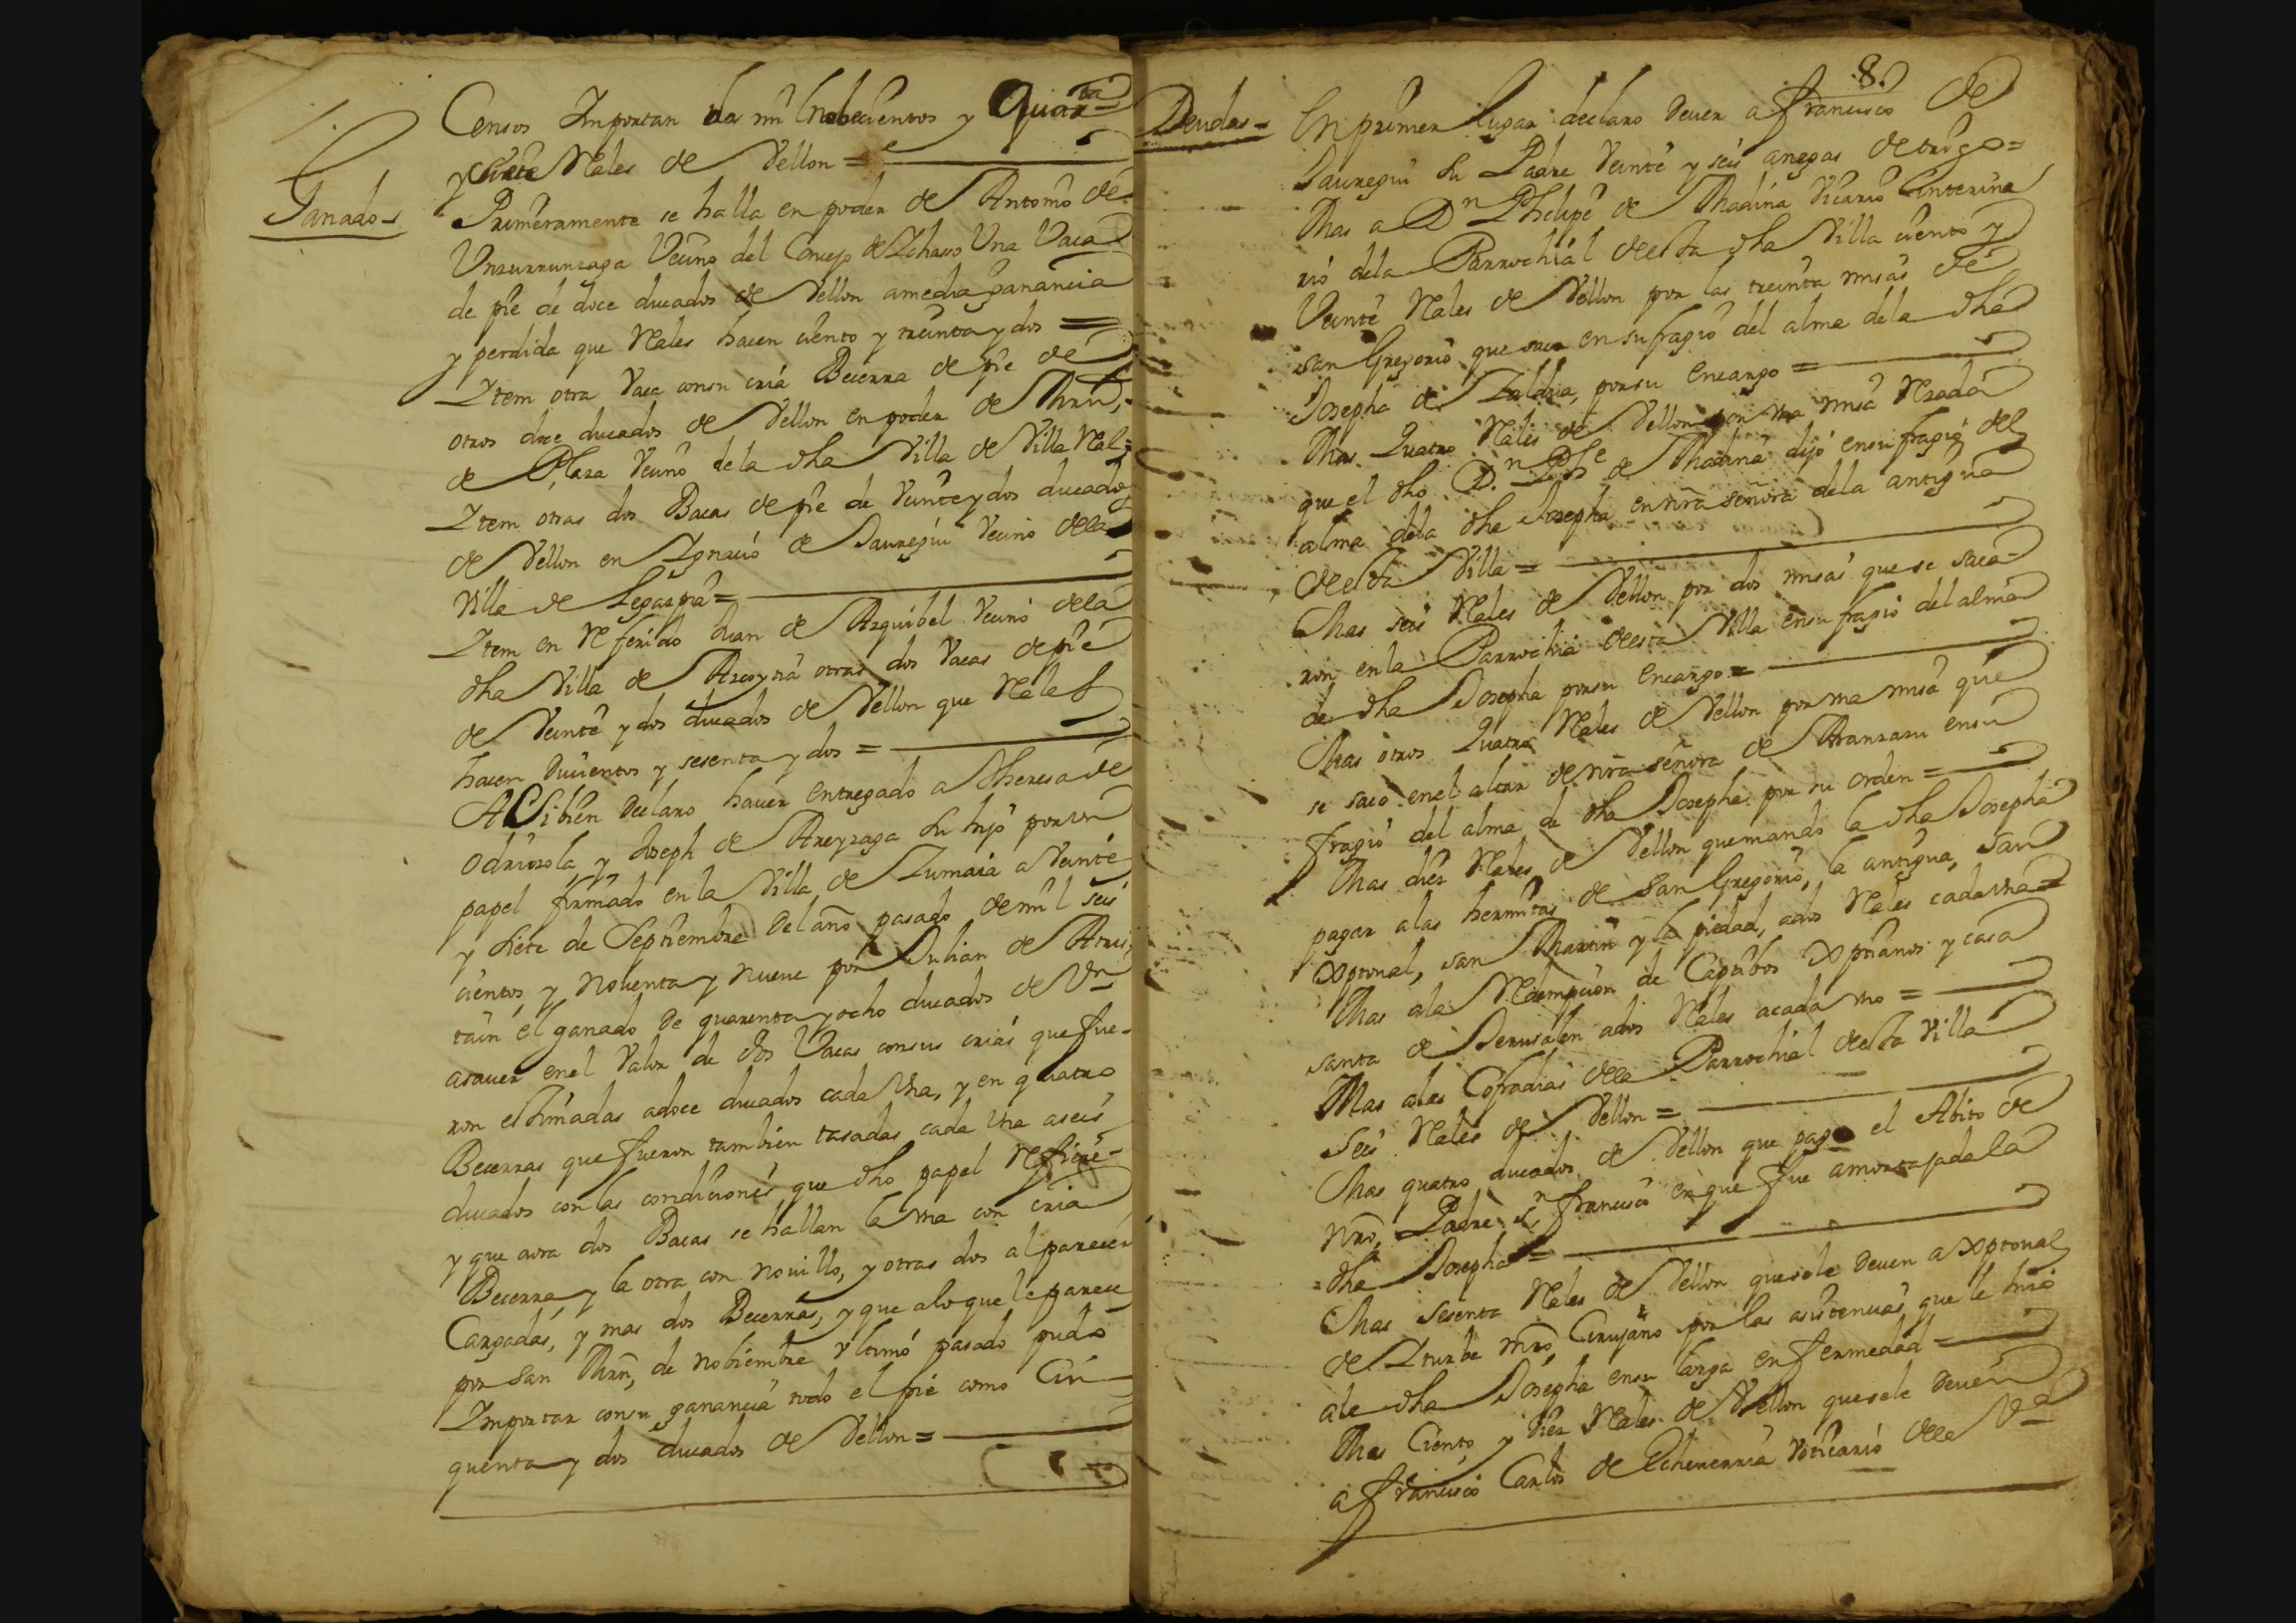 Censos Importan dos mil Nobecientos y Quarta
y siete Reales de Vellon =
Ganado-
Primeramente se halla en poder de Antonio de
Unzurrunzaga Vecino del Concejo de Ichaso Una Vaca
de pie de doce ducados de Vellon amedia ganancia
y perdida que Reales hacen ciento y treinta y dos =
Item otra Vaca consu cria Becerra de pie de
otros doce ducados de Vellon en poder de Mrn,
de Plaza Vecino dela dha Villa de Villa Real;
Item otras dos Bacas de pie de Veinte y dos ducados
de Vellon en Ignacio de Jauregui Vecino dela
Villa de Legazpia =
Item en Referido Juan de Arquibel Vecino dela
dha Villa de otras dos Vacas de pie
de Veinte y dos ducados de Vellon que Reales
hacen Ducientos y sesenta y dos =
ASibien Declaro hauer entregado a Theresa de
Odriozola y Joseph de Areyzaga su hijo por un
papel firmado en la Villa de Zumaia a Veinte
y Siete de Septiembre Del año pasado de mil seis
cientos y Nobenta y nueve por Julian de Atris,
tain el ganado De quarenta y ocho ducados de Vn
asauer en el Valor de dos Vacas consus crias que fue-
ron estimadas adoce ducados cada Una, y en quatro
Becerras que fueron tambien tasadas cada Una aseis
ducados con las condiciones que dho papel Refiere-
y que aora dos Bacas se hallan la una con cria
Becerra y la otra con Novillo, y otras dos al parecer
Cargadas, y mas dos Becerras, y que alo que le parece
por San Mrn, de Nobiembre Vltimo pasado pudo
Importar consu ganancia todo el pie como Cin-
quenta y dos ducados de Vellon =
8.
Deudas-
En primer lugar declaro Deuer a francisco de
Jauregui su Padre Veinte y seis anegas de trigo =
Mas a Dn Phelipe de Madina Vicario Ynterina
rio dela Parrochial desta dha Villa ciento y
Veinte Reales de Vellon por las treinta misas de
san Gregorio que saca en sufragio del alma dela dha
Josepha de Zaldua, por su Encargo =
Mas Quatro Reales de Vellon por una misa Rezada
que el dho D.n Phe de Madina dijo en su fragio del
alma dela dha Josepha en nra señora dela antigua
desta Villa =
Mas seis Reales de Vellon por dos misas que se saca-
ron en la Parrochia desta Villa ensu fragio del alma
de dha Josepha porsu Encargo =
Mas otros Quatro Reales de Vellon por una misa que
se saco en el altar de nra señora de Aranzazu ensu
fragio del alma de dha Josepha por su orden =
Mas diez Reales de Vellon que mando la dha Josepha
pagar alas hermitas de San Gregorio, la antigua, San
Xptoual, san Martin y la piedad, ados Reales cada una =
Mas ala Redempcion de Captibos Xptianos y casa
santa de Jerusalen ados Reales acada uno =
Mas alas Cofradias dela Parrochial desta Villa
Seis Reales de Vellon =
Mas quatro ducados de Vellon que pago el Abito de
Nro, Padre Sn francisco en que fue amortajada la
dha Josepha =
Mas Sesenta Reales de Vellon quesele Deuen a Xptoual
de Iturbe mro, Cirujano por las asistencias que le hizo
ala dha Josepha ensu larga enfermedad =
Mas Ciento y Diez Reales de Vellon quesele Deuen
a francisco Carlos de Echeuerria Voticario dela Va